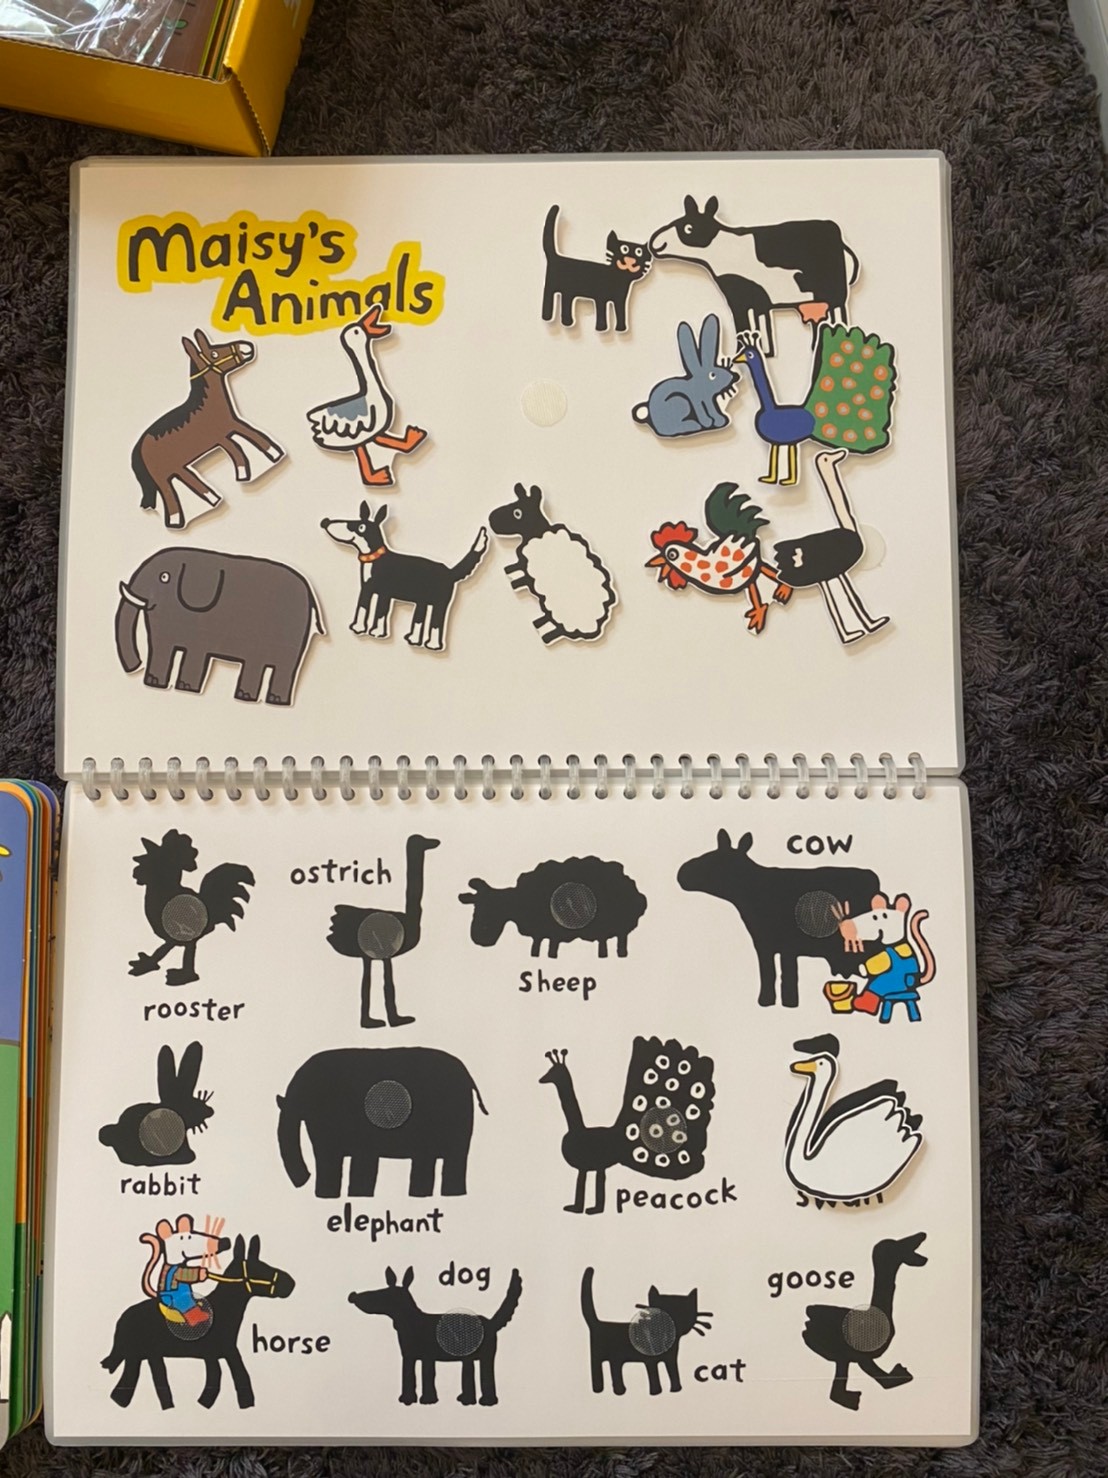 Maisy's
Animals
cow
ostrich
Sheep
rooster
rabbit
peacock
swan
elephant
dog
goose
horse
cat